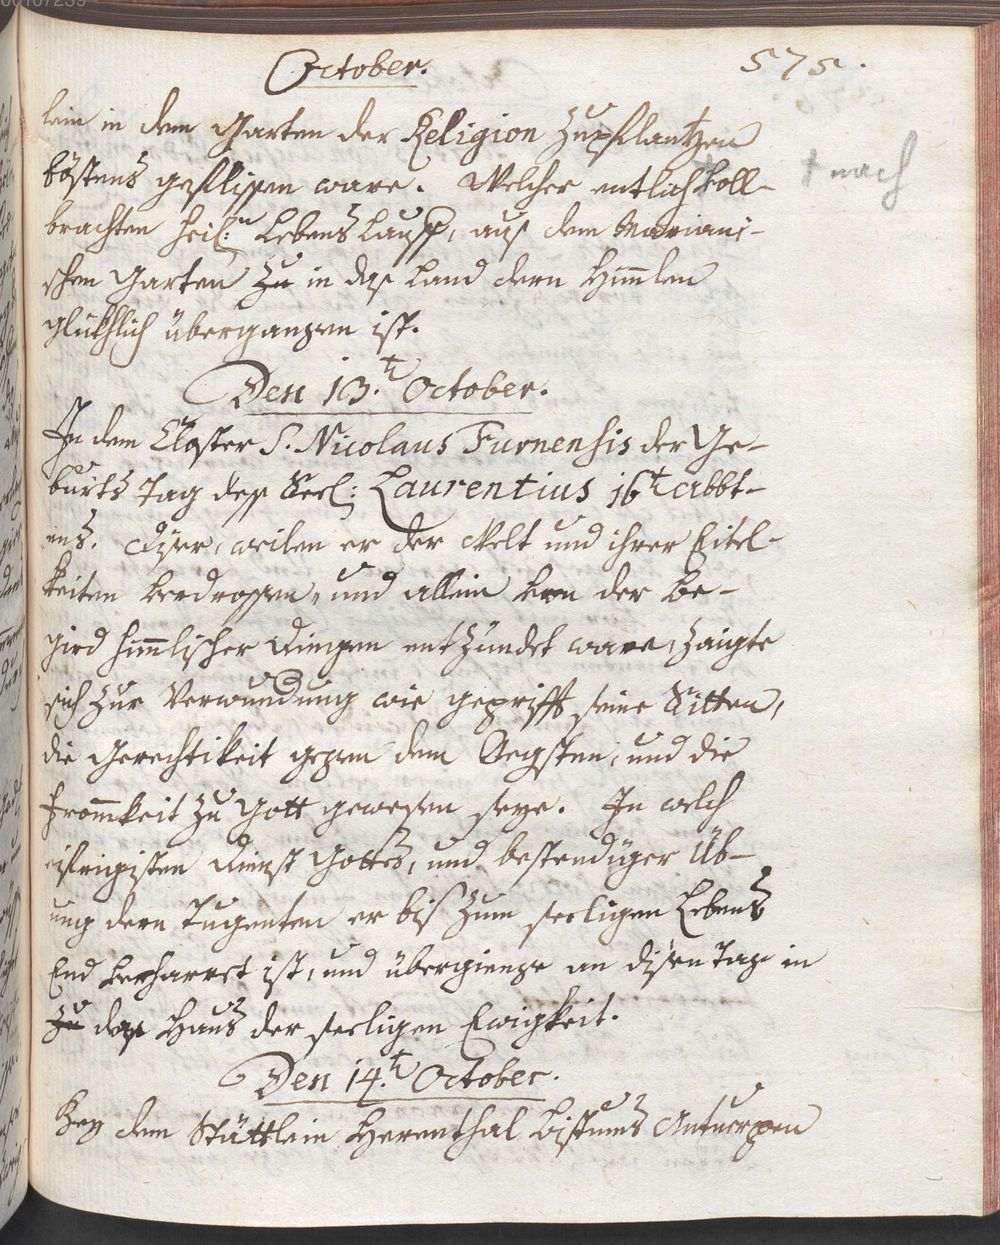 October.
575.
lein in dem Garten der Religion zu pflantzen
böstens geflissen ware. Welcher entlich voll-
+ nach
brachten heil:n Lebens Lauff, aus dem Mariani-
schen Garten zu in das Land dern Himmlen
glükhlich übergangen ist.
Den 13.t October.
In dem Closter S. Nicolaus Furnensis der Ge-
burts Tag des Seel: Laurentius 16t Abbt-
ens. Diser, weilen er der Welt und ihrer Eitel-
keiten verdrossen, und allein von der Be-
gird himmlischer Dingen entzündet ware, zaigte
sich zur Verwundung wie geprifft seine Sitten,
die Gerechtikeit gegen dem Negsten, und die
Frommkeit zu Gott gewesen seye. In welch
eifrigisten Dienst Gottes, und bestendiger Üb-
ung dern Tugenten er bis zum seeligen Lebens
End verharret ist, und übergienge an disen Tag in
zu das Haus der seeligen Ewigkeit.
Den 14.t October.
Bey dem Stättlein Herenthal Bistums Antuerpen